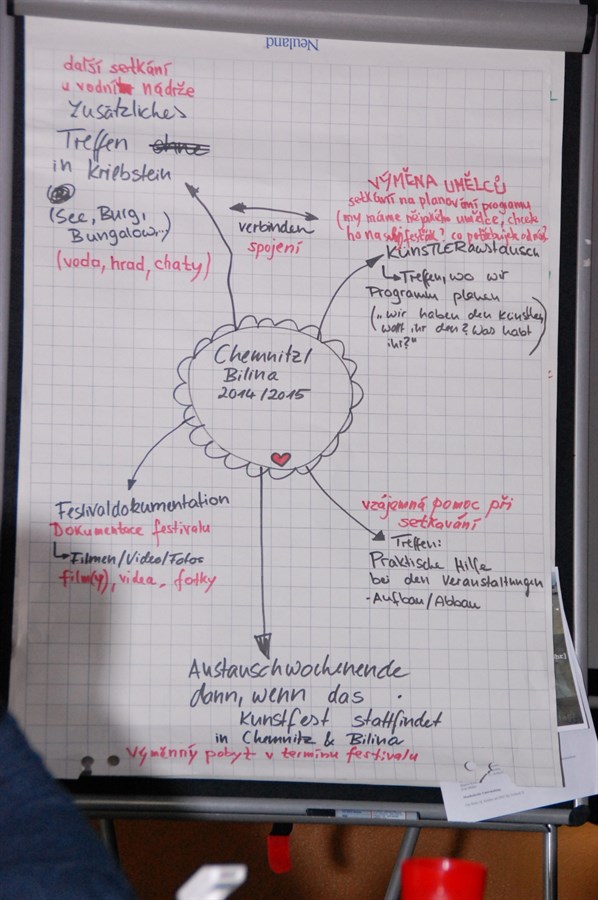 Neuland
další setkání
u vodní nádrže
Zusätzliches
Treffen
in Kriebstein
(See, Burg,
Bungalow..)
(voda, hrad, chaty)
verbinden
spojení
VÝMĚNA UMĚLCŮ
setkání na plánování programu
(my máme nějakého umělce, chcete
ho na svůj festák? co potřebujete od nás
KÜNSTLERaustausch
Treffen, wo wir
Programm planen
("wir haben den Künstler,
wollt ihr den? Was habt
ihr?"
Chemnitz/
Bilina
2014/2015
Festivaldokumentation
Dokumentace festivalu
Filmen/Video/Fotos
film(y), videa, fotky
vzájemná pomoc při
setkávání
Treffen:
Praktische Hilfe
bei den Veranstaltungen
- Aufbau/Abbau
Austauschwochenende
dann, wenn das
Kunstfest stattfindet
in Chemnitz & Bilina
Výměnný pobyt v termínu festivalu